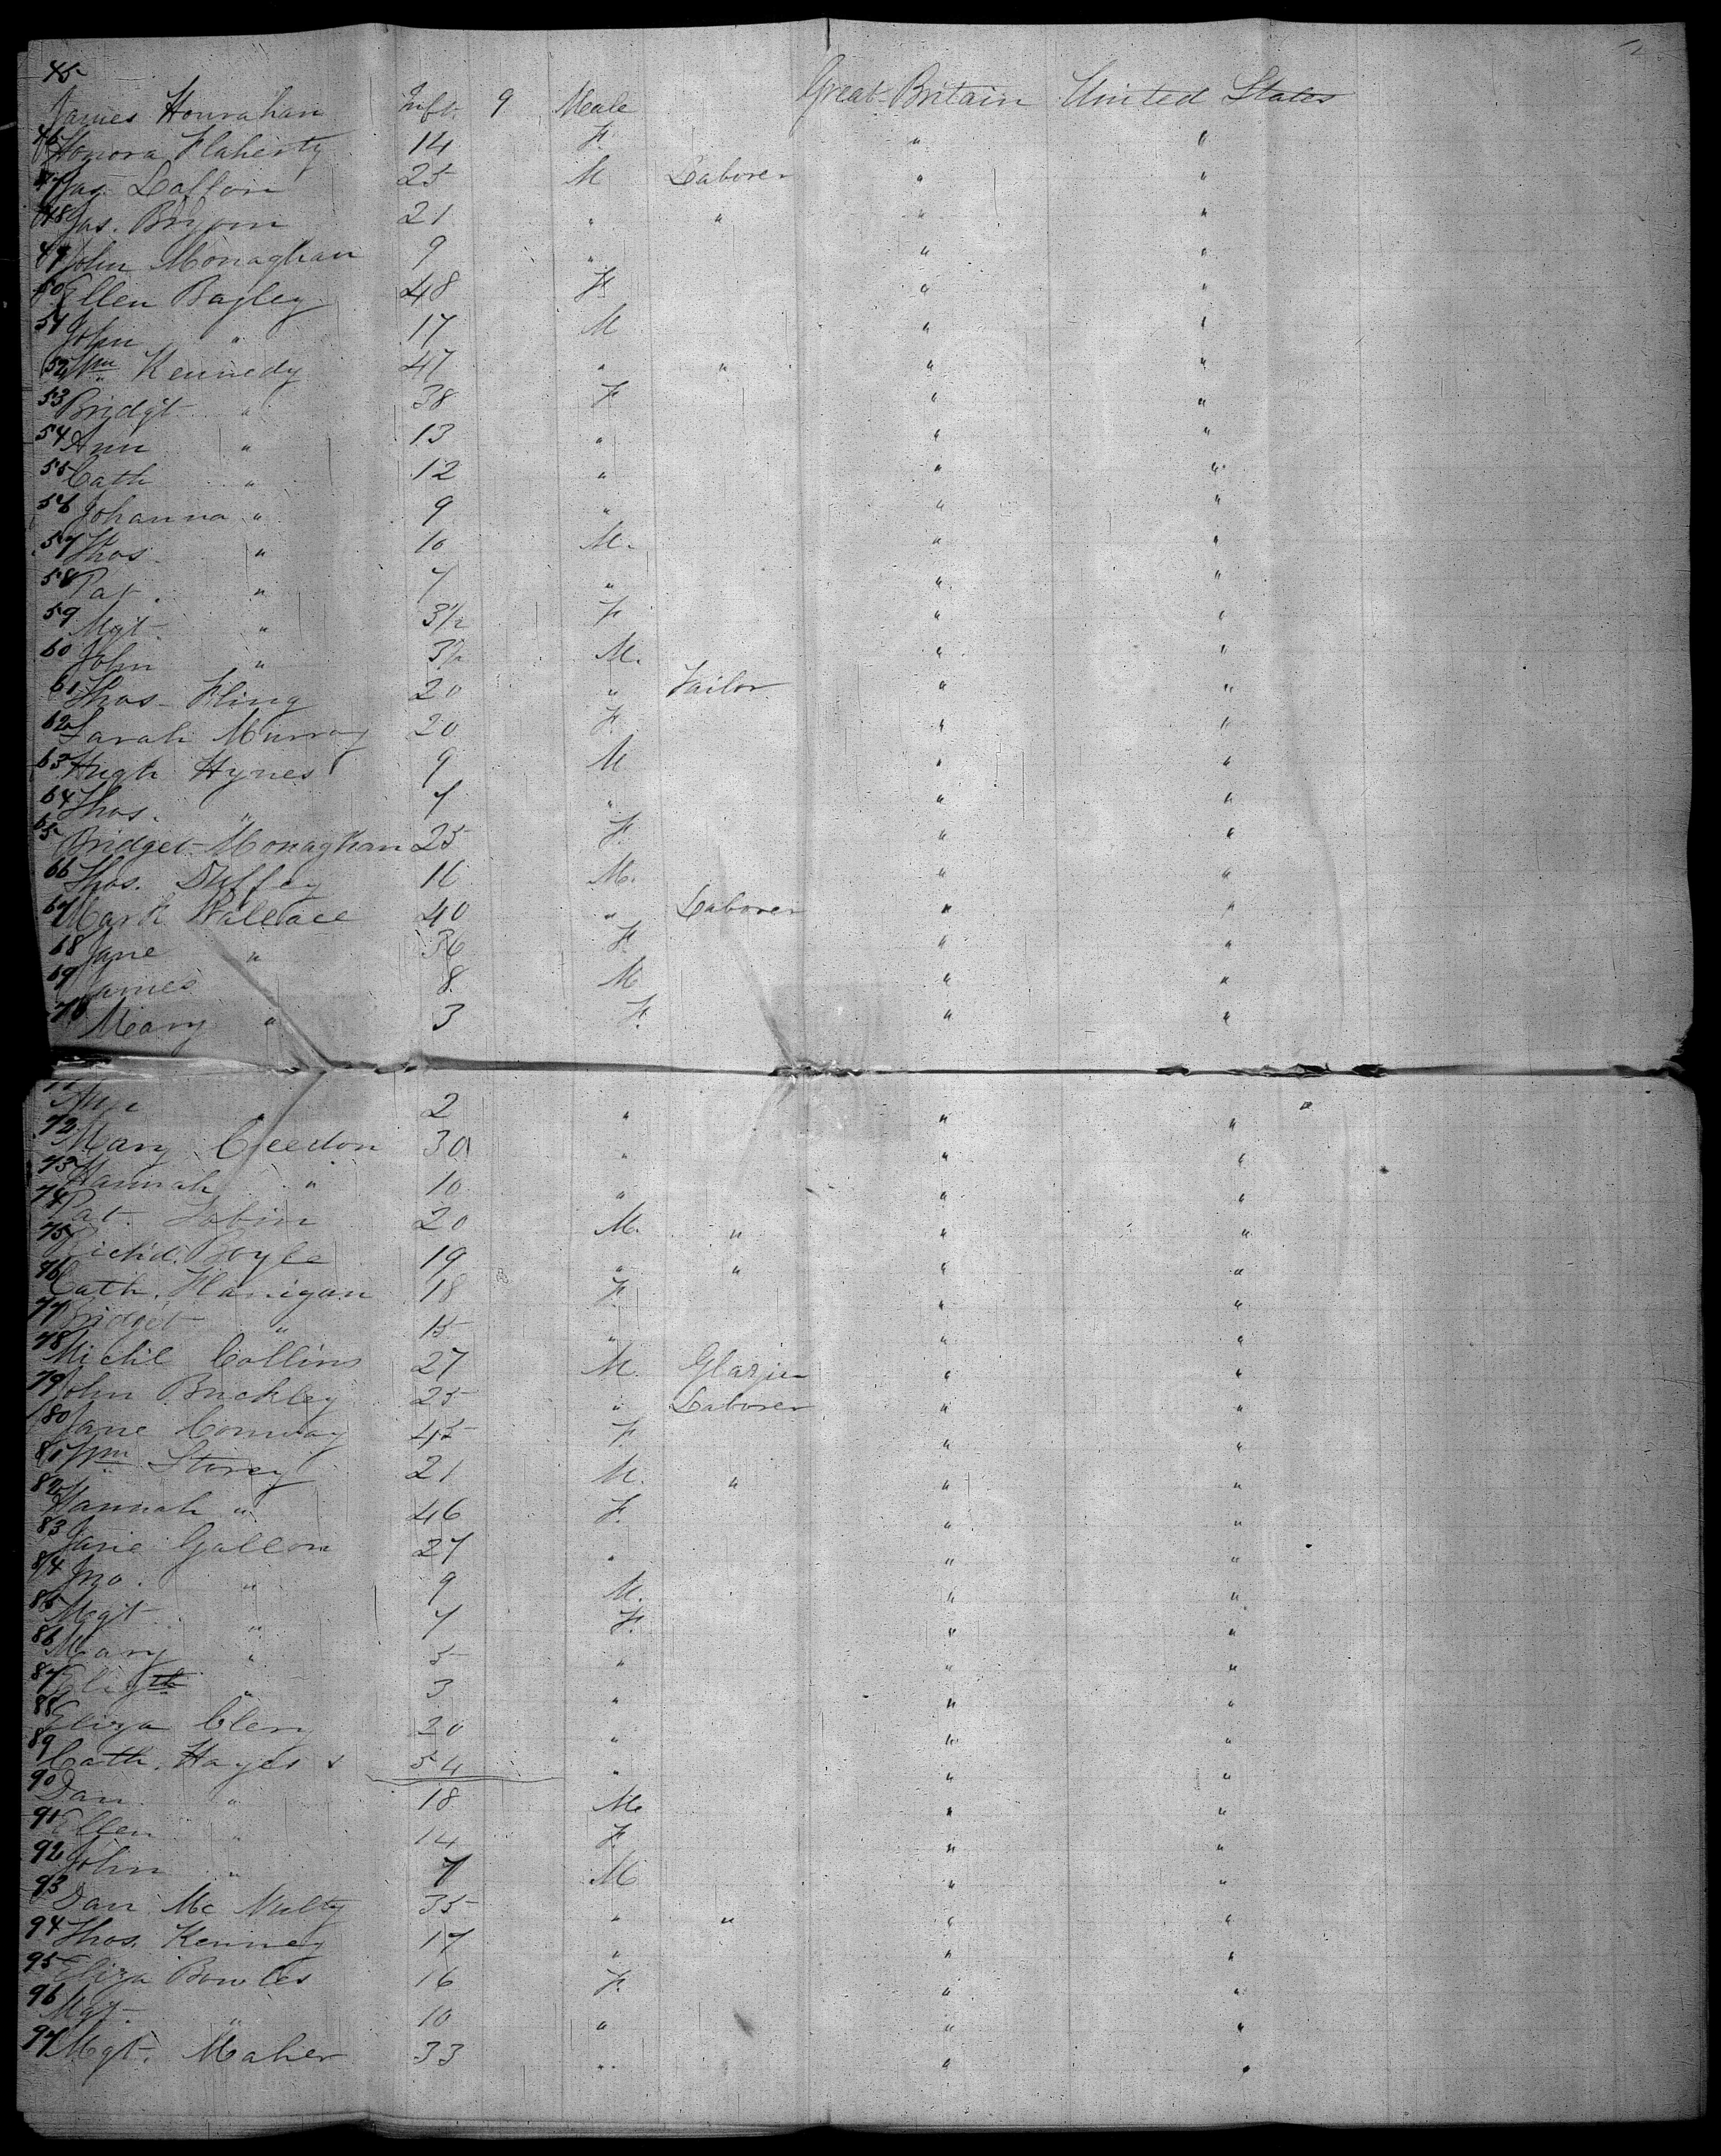 45 James Hourahan Inft. 9 Male Great Britain United States
46 Honora Flaherty 14 F. " "
47 Jas. Laffon 25 M Laborer " "
48 Jas. 21 " " " "
49 John Monaghan 9 " " "
50 Ellen Bayley 48 F. " "
51 John " 17 M " "
52 Wm Kennedy 47 " " " "
53 Bridgt " 38 F " "
54 Ann " 13 " " "
55 Cath " 12 " " "
56 Johanna " 9 " " "
57 Thos " 10 M. " "
58 Pat. " 7 " " "
59 Mgt. " 3½ F. " "
60 John " 3½ M. " "
61 Thos. Fling 20 " Tailor " "
62 Sarah Murray 20 F. " "
63 Hugh Hynes 9 M " "
64 Thos. " 7 " " "
65 Bridget Monaghan 25 F. " "
66 Thos. Duffey 16 M. " "
67 Mark Wallace 40 " Laborer " "
68 Jane " 36 F. " "
69 James 8 M " "
70 Mary " 3 F. " "
71 Ann 2 " " "
72 Mary Creedon 30 " " "
73 Hannah " 10 " " "
74 Pat. Tobin 20 M. " " "
75 Richd. Boyle 19 " " " "
76 Cath. Flanigan 18 F. " "
77 Bridget " 15 " " "
78 Michl Collins 27 M. Glazier " "
79 John Buckley 25 " Laborer " "
80 Jane Conway 45 F. " "
81 Wm Storey 21 M. " " "
82 Hannah " 46 F. " "
83 Jane Gallon 27 " " "
84 Jno. " 9 M. " "
85 Mgt " 7 F. " "
86 Mary " 5 " " "
87 Elizth " 3 " " "
88 Eliza Clery 20 " " "
89 Cath. Hayes x 54 " " "
90 Dan " 18 M. " "
91 Ellen " 14 F. " "
92 John " 7 M " "
93 Dan Mc Nulty 35 " " " "
94 Thos. Kenney 17 " " "
95 Eliza Bowles 16 F. " "
96 Mgt. " 10 " " "
97 Mgt. Maher 33 " " "